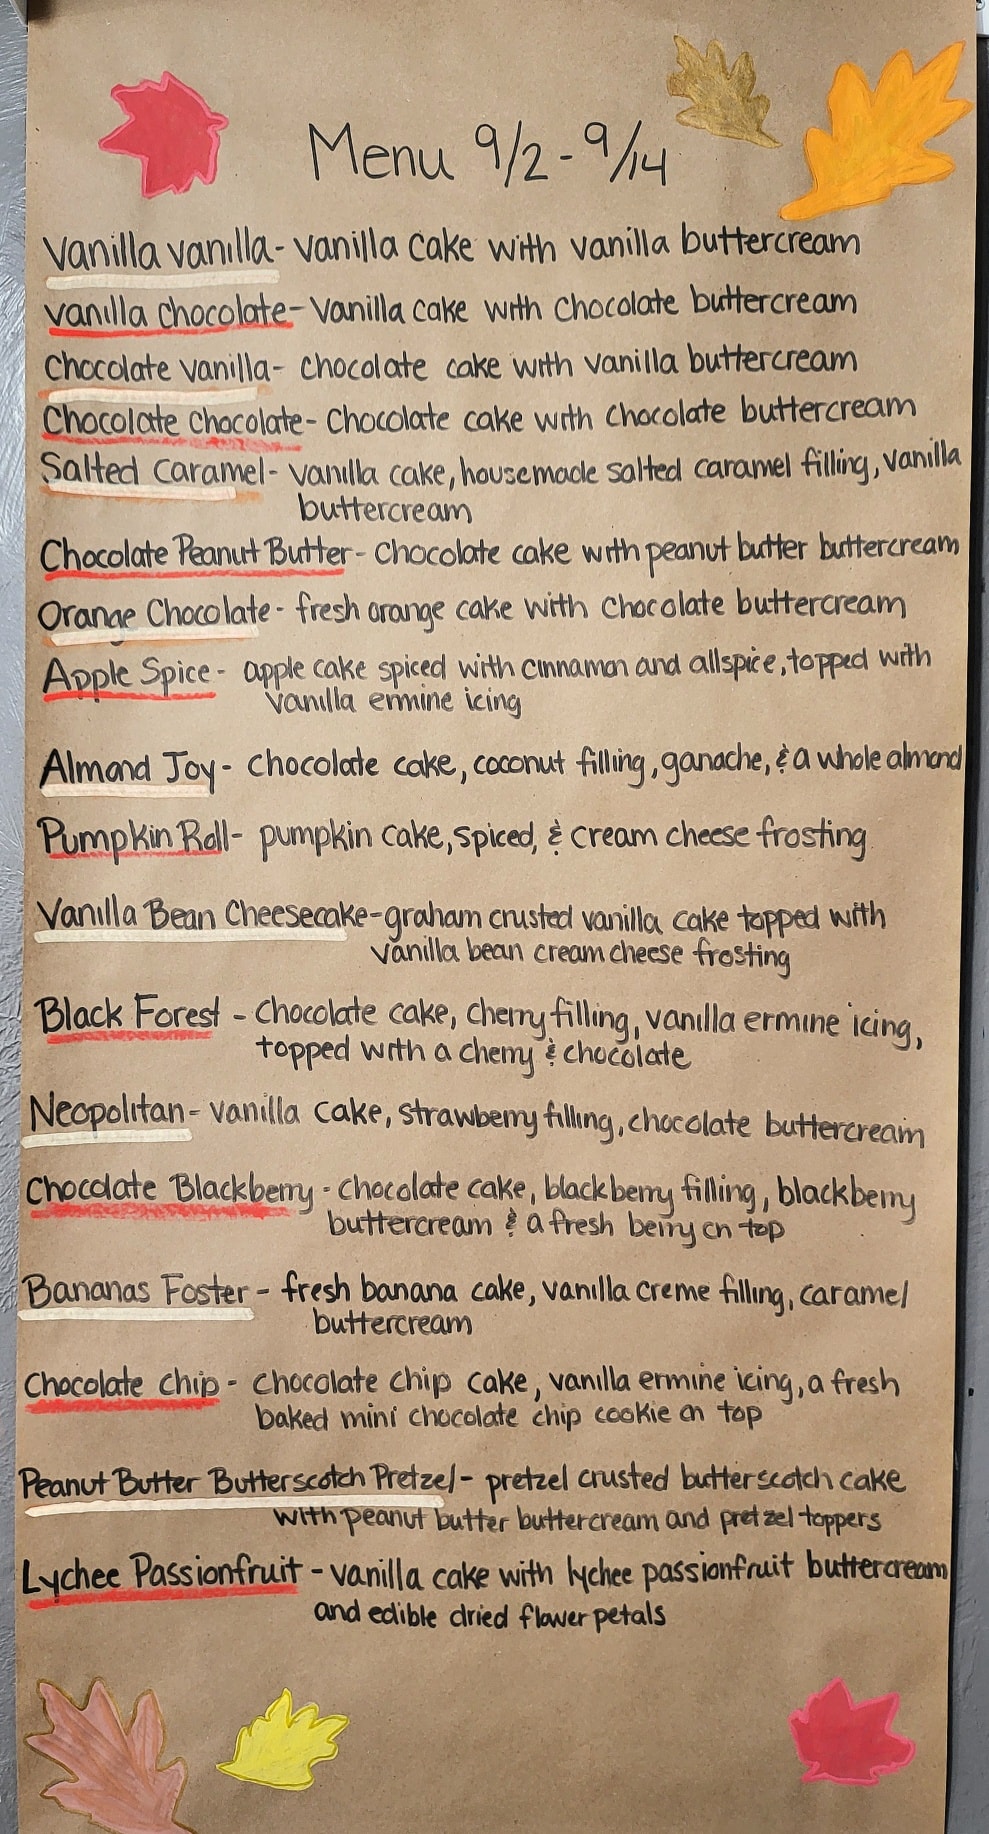 Menu 9/2 - 9/14
Vanilla vanilla - vanilla cake with vanilla buttercream
vanilla chocolate - Vanilla cake with chocolate buttercream
Chocolate vanilla - chocolate cake with vanilla buttercream
Chocolate chocolate - Chocolate cake with chocolate buttercream
Salted caramel - vanilla cake, housemade salted caramel filling, vanilla
buttercream
Chocolate Peanut Butter - chocolate cake with peanut butter buttercream
Orange Chocolate - fresh orange cake with chocolate buttercream
Apple Spice - apple cake spiced with cinnamon and allspice, topped with
vanilla ermine icing
Almond Joy - chocolate cake, coconut filling, ganache, & a whole almond
Pumpkin Roll - pumpkin cake, spiced, & cream cheese frosting
Vanilla Bean Cheesecake - graham crusted vanilla cake topped with
vanilla bean cream cheese frosting
Black Forest - chocolate cake, cherry filling, vanilla ermine icing,
topped with a cherry & chocolate
Neopolitan - vanilla cake, strawberry filling, chocolate buttercream
Chocolate Blackberry - chocolate cake, blackberry filling, blackberry
buttercream & a fresh berry on top
Bananas Foster - fresh banana cake, vanilla creme filling, caramel
buttercream
Chocolate chip - chocolate chip cake, vanilla ermine icing, a fresh
baked mini chocolate chip cookie on top
Peanut Butter Butterscotch Pretzel - pretzel crusted butterscotch cake
with peanut butter buttercream and pretzel toppers
Lychee Passionfruit - vanilla cake with lychee passionfruit buttercream
and edible dried flower petals